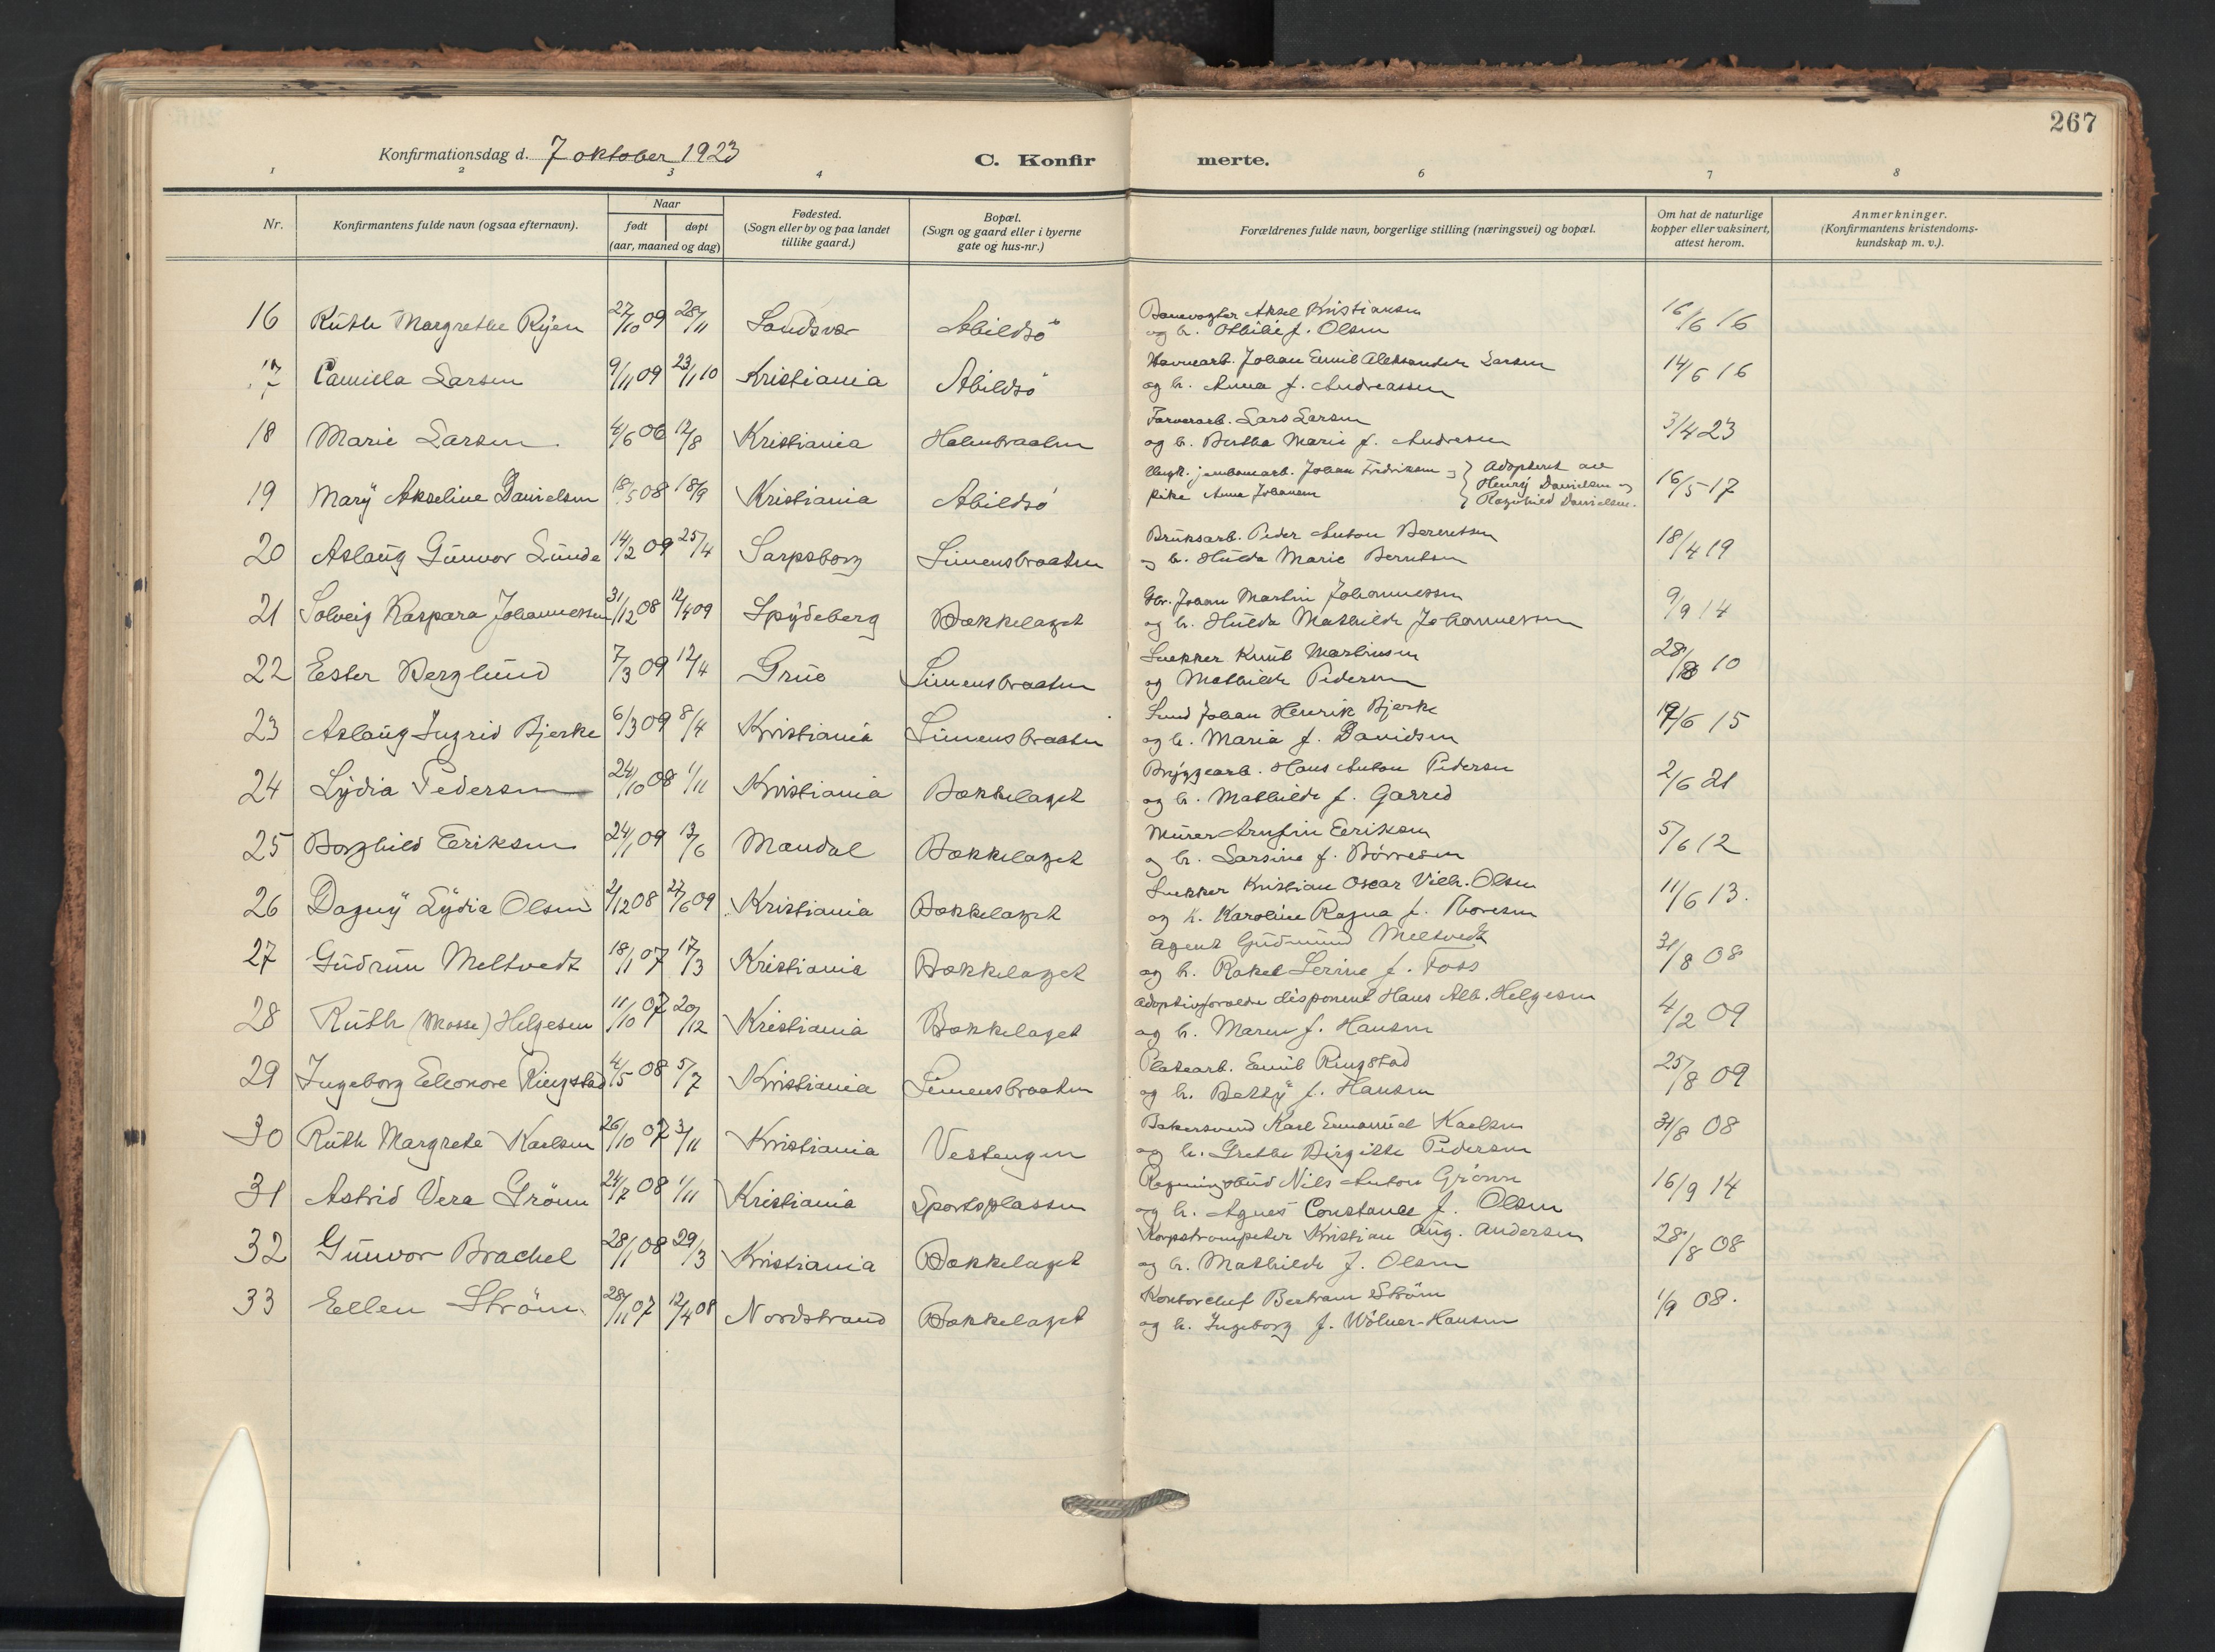 267
Konfirmationsdag d. 7 oktober 1923 C. Konfir merte.
1 2 3 4 6 7 8
Nr. Konfirmantens fulde navn (ogsaa efternavn). Naar født døpt (aar, maaned og dag) Fødested. (Sogn eller by og paa landet tillike gaard.) Bopæl. (Sogn og gaard eller i byerne gate og hus-nr.) Forældrenes fulde navn, borgerlige stilling (næringsvei) og bopæl. Om hat de naturlige kopper eller vaksinert, attest herom. Anmerkninger. (Konfirmantens kristendomskundskap m. v.).
16 Ruth Margrethe Ryen 27/10 09 28/11 Sandsvær Abildsö Banevogter Aksel Kristiansen 16/6 16
og h. Othilie f. Olsen
17 Camilla Larsen 9/11 09 23/1 10 Kristiania Abildsö Havnearb. Johan Emil Aleksander Larsen 14/6 16
og h. Anna f. Andreassen
18 Marie Larsen 4/6 06 12/8 Kristiania Holmbraaten Farverarb. Lars Larsen 3/4 23
og h. Bertha Marie f. Andresen
19 Mary Akseline Danielsen 18/5 08 18/9 Kristiania Abildsö Ungk. jernbanearb. Johan Fredriksen og } Adopteret av 16/5 17
pike Anna Johansen } Henry Danielsen og
} Ragnhild Danielsen.
20 Aslaug Gunvor Lunde 14/2 09 25/4 Sarpsborg Simensbraaten Bruksarb. Peder Anton Berentsen 18/4 19
og h. Hulda Marie Berntsen
21 Solveig Kaspara Johannessen 31/12 08 12/4 09 Spydeberg Bækkelaget Gbr. Johan Martin Johannessen 9/9 14
og h. Hulda Mathilde Johannessen
22 Ester Berglund 7/3 09 12/4 Grue Simensbraaten Snekker Knut Martinsen 28/8 10
og Mathilde Pedersen
23 Aslaug Ingrid Bjerke 6/3 09 8/4 Kristiania Simensbraaten Smed Johan Henrik Bjerke 19/6 15
og h. Maria f. Davidsen
24 Lydia Pedersen 24/10 08 1/11 Kristiania Bækkelaget Bryggearb. Hans Anton Pedersen 2/6 21
og h. Mathilde f. Garred
25 Borghild Eriksen 24/1 09 13/6 Mandal Bækkelaget Murer Arnfin Eriksen 5/6 12
og h. Larsine f. Börresen
26 Dagny Lydia Olsen 2/12 08 27/6 09 Kristiania Bækkelaget Snekker Kristian Oscar Vilh. Olsen 11/6 13.
og h. Karoline Ragna f. Thoresen
27 Gudrun Meltvedt 18/1 07 17/3 Kristiania Bækkelaget Agent Gudmund Meltvedt 31/8 08
og h. Rakel Serine f. Foss
28 Ruth (Mosse) Helgesen 11/10 07 20/12 Kristiania Bækkelaget Adoptivforældre disponent Hans Alb. Helgesen 4/2 09
og h. Maren f. Hansen
29 Ingeborg Eleonore Ringstad 4/5 08 5/7 Kristiania Simensbraaten Platearb. Emil Ringstad 25/8 09
og h. Betsy f. Hansen
30 Ruth Margrete Karlsen 26/10 07 3/11 Kristiania Vestengen Bakersvend Karl Emanuel Karlsen 31/8 08
og h. Grethe Birgitte Pedersen
31 Astrid Vera Grönn 24/7 08 1/11 Kristiania Sportsplassen Regningsbud Nils Anton Grönn 16/9 14
og h. Agnes Constance f. Olsen
32 Gunvor Brachel 28/1 08 29/3 Kristiania Bækkelaget Korpstrompeter Kristian Aug. Andersen 28/8 08
og h. Mathilde f. Olsen
33 Ellen Ström 28/11 07 12/4 08 Nordstrand Bækkelaget Kontorchef Bertram Ström 1/9 08.
og h. Ingeborg f. Wölner-Hansen